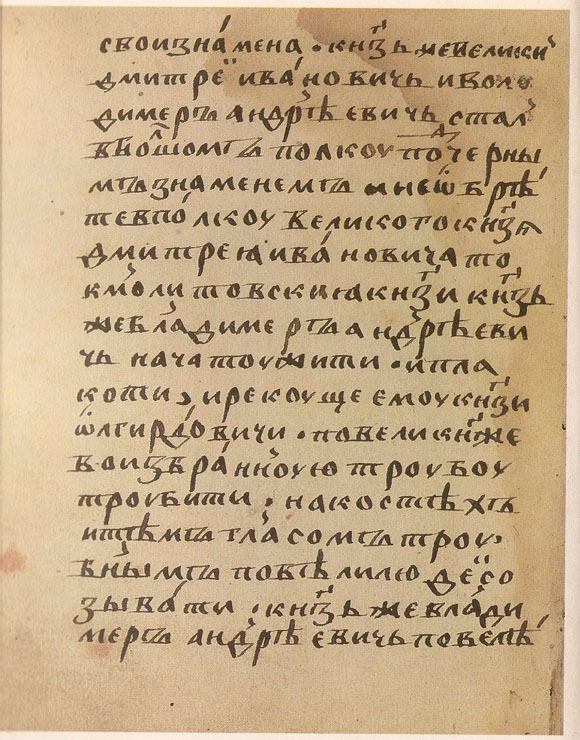 свои знамена . кн҃зь же великии
дмитреи ивановичь и воло
димеръ андрѣевичь стал
в болшомъ полкоу под черны
мъ знаменемъ и не ѡбрѣ
те в полкоу великого кн҃зя
дмитрея ивановича то
кмо литовския кн҃зи кн҃зь
же владимеръ андрѣеви
чь нача тоужити . и пла
коти , и рекоуще емоу кн҃зи
ѡлгирдовичи . повели кн҃же
во избранноую троубоу
троубити . на костѣхъ
и тѣмъ гласомъ троу
бнымъ повѣли людеи со
зывати . кн҃зь же влади
меръ андрѣевичь повелѣ